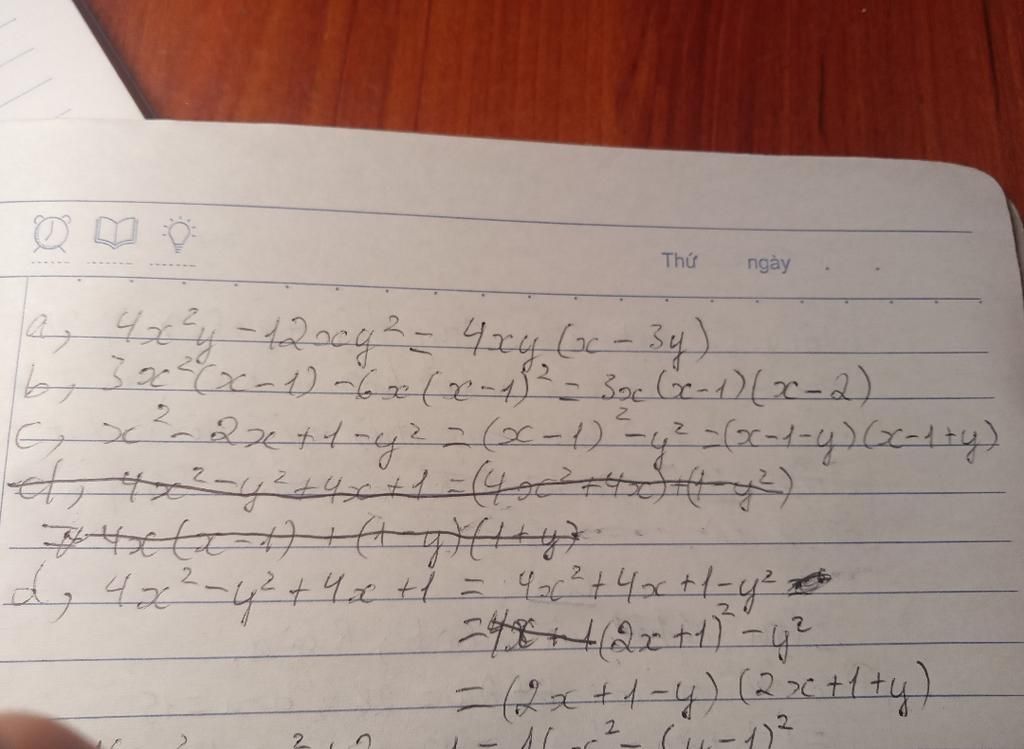 Thứ ngày . .
a, 4x²y - 12xy² = 4xy(x - 3y)
b, 3x²(x-1) - 6x(x-1)² = 3x(x-1)(x-2)
c, x² - 2x + 1 - y² = (x-1)² - y² = (x-1-y)(x-1+y)
d, 4x² - y² + 4x + 1 = (4x² + 4x) + (1 - y²)
= 4x(x-1) + (1-y)(1+y)
d, 4x² - y² + 4x + 1 = 4x² + 4x + 1 - y²
= 4x + 1 (2x+1)² - y²
= (2x + 1 - y) (2x + 1 + y)